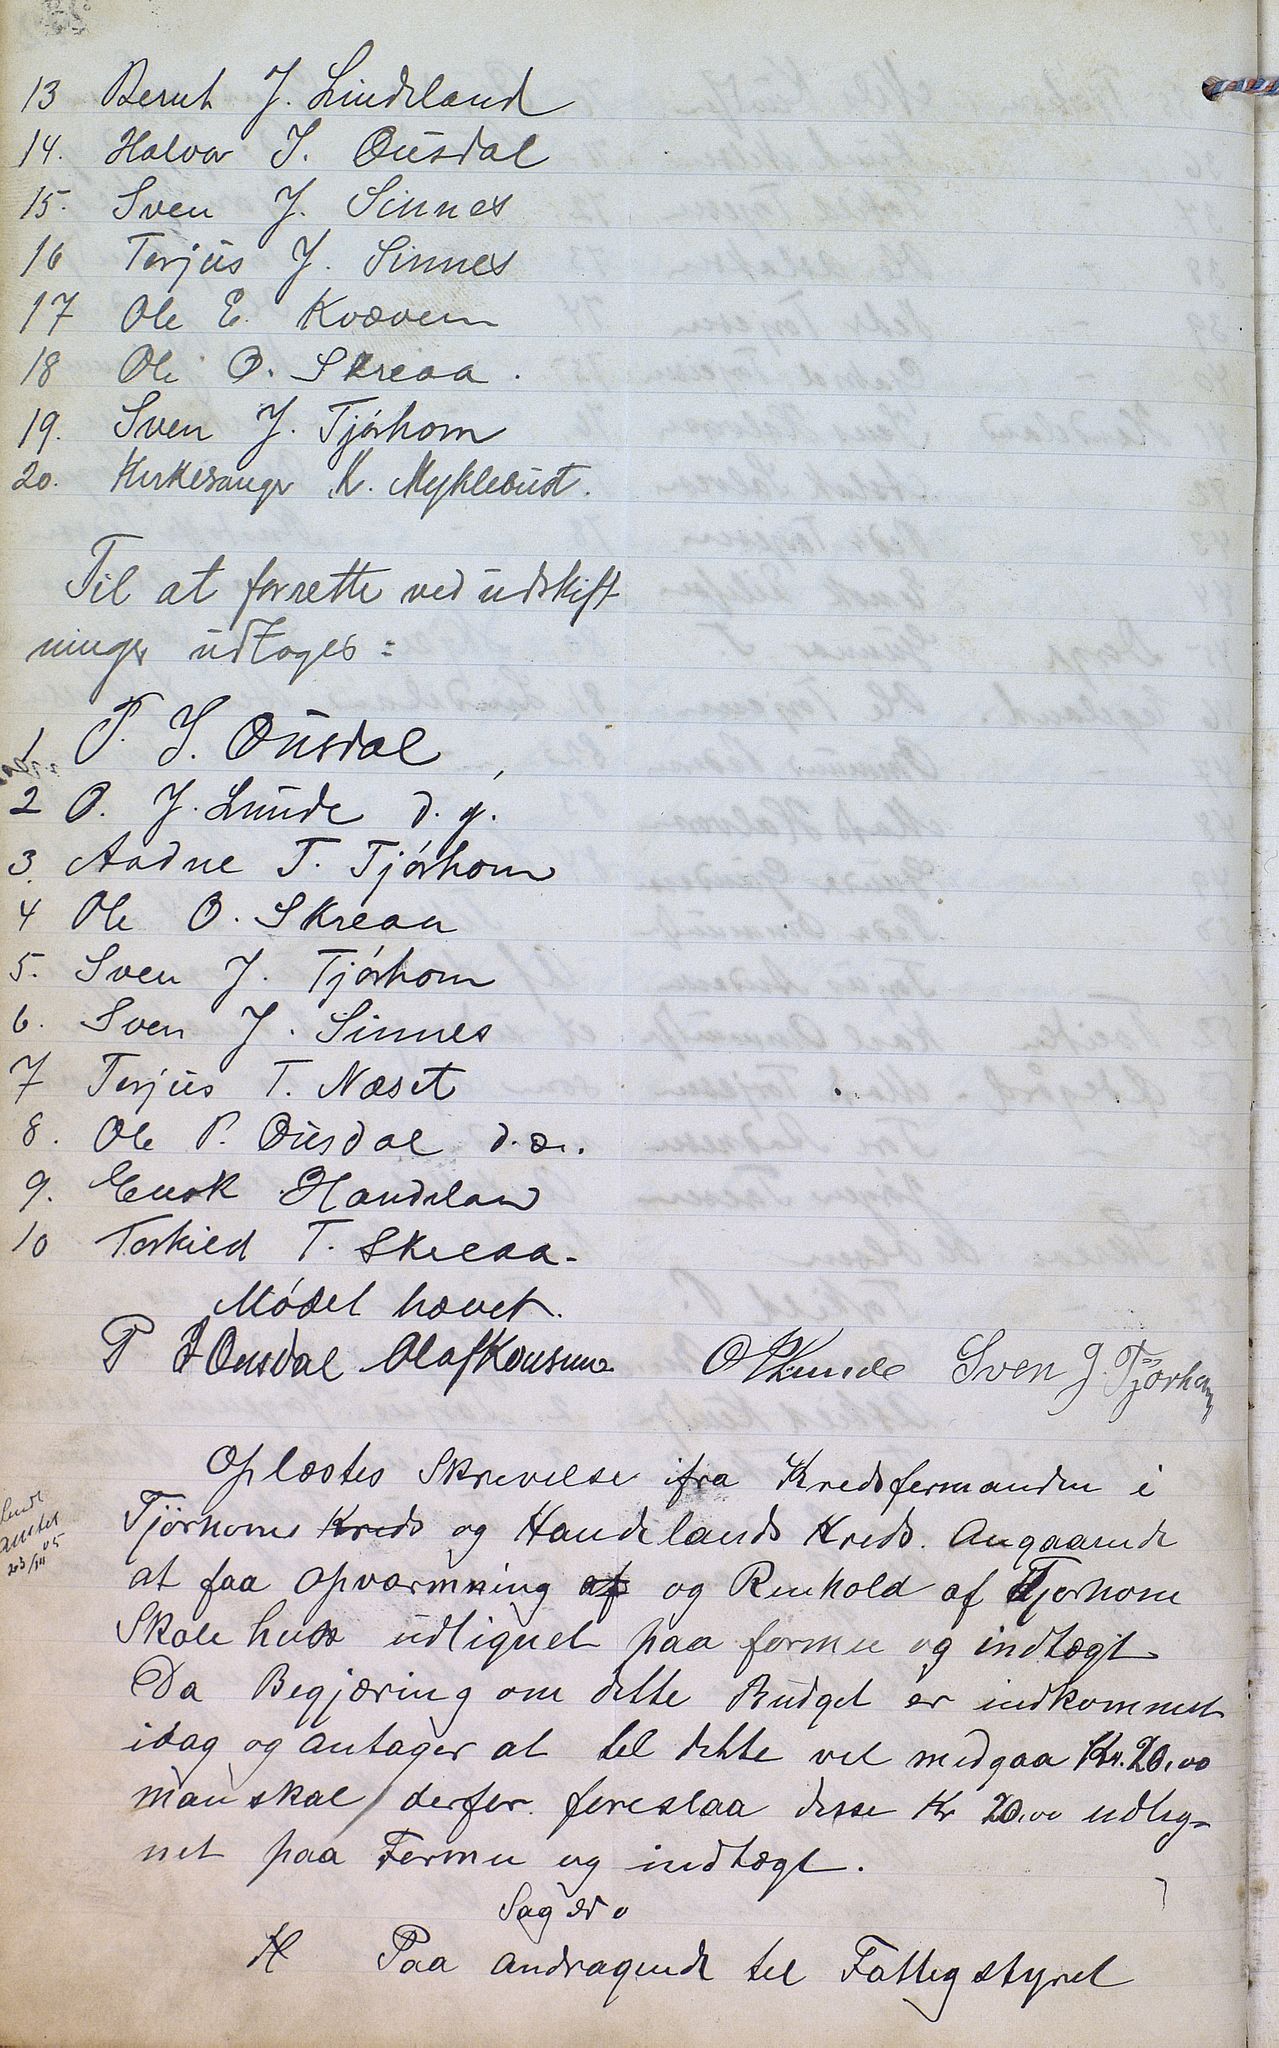 13 Bernt J. Lindeland
14. Halvor I. Ousdal
15. Sven J. Sinnes
16 Terjus J. Sinnes
17 Ole E. Kvævem
18 Ole O. Skreaa.
19. Sven J. Tjórhom
20. Kirkesanger K. Myklebust.
Til at forrette ved udskift
ninger udtoges:
1 P. S. Ousdal
2 O. J. Lunde d. y.
3. Aadne T. Tjórhom
4 Ole O. Skreaa
5. Sven J. Tjórhom
6. Sven J. Sinnes
7 Terjus T. Næset
8. Ole P. Ousdal d.æ.
9. Enok Handeland
10 Torkild T. Skreaa.
Módet hævet.
P S Ousdal Olaf Konsmo O P Lunde Sven J. Tjørhom
Oplæstes Skrivelse ifra Kredsformanden i
Tjörhoms Kreds og Handelands Kreds. Angaaende
at faa Opvarmning af og Renhold af Tjorhom
Skolehus udlignet paa formue og indtægt
Da Begjæring om dette Budget er indkommet
idag og antager at til dette vil medgaa Kr. 20.00
man skal derfor foreslaa disse Kr 20.00 udlig-
net paa Formue og indtægt.
Sag
Paa andragende til Fattigstyret